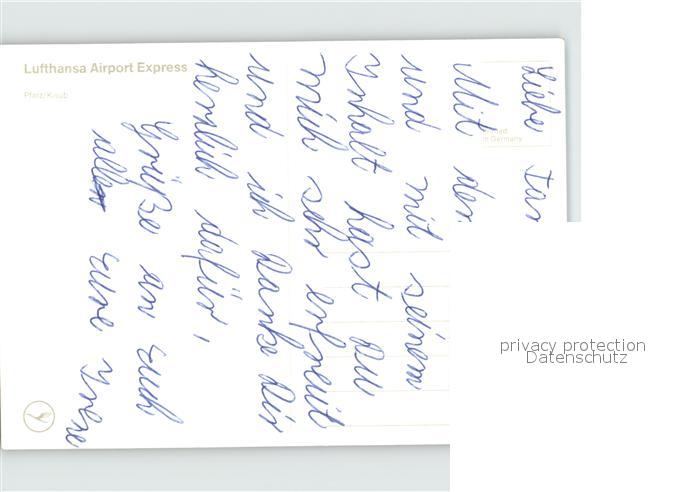 Lufthansa Airport Express
Pfalz/Kaub
Printed
in Germany
Liebe
Mit der
und mit seinem
Inhalt hast Du
mich sehr erfreut
und ich danke Dir
herzlich dafür,
Grüße an Euch
allen Eure Irene
privacy protection
Datenschutz